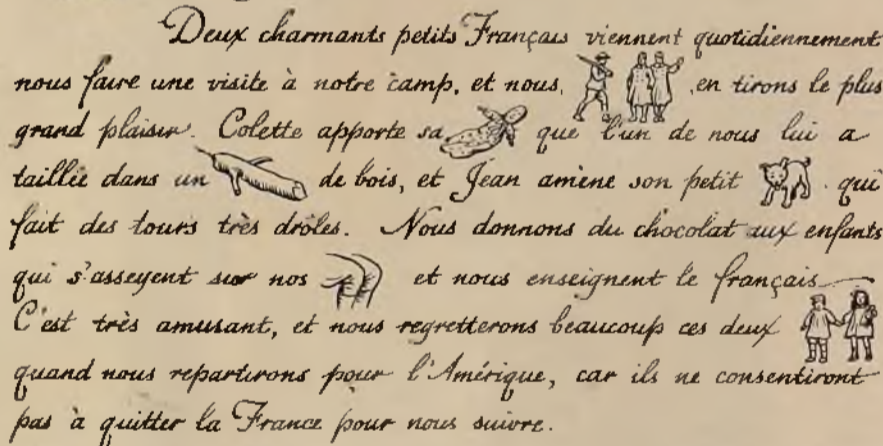 Deux charmants petits Français viennent quotidiennement
nous faire une visite à notre camp, et nous, en tirons le plus
grand plaisir. Colette apporte sa que l'un de nous lui a
taillée dans un de bois, et Jean amène son petit qui
fait des tours très drôles. Nous donnons du chocolat aux enfants
qui s'asseyent sur nos et nous enseignent le français.
C'est très amusant, et nous regretterons beaucoup ces deux
quand nous repartirons pour l'Amérique, car ils ne consentiront
pas à quitter la France pour nous suivre.